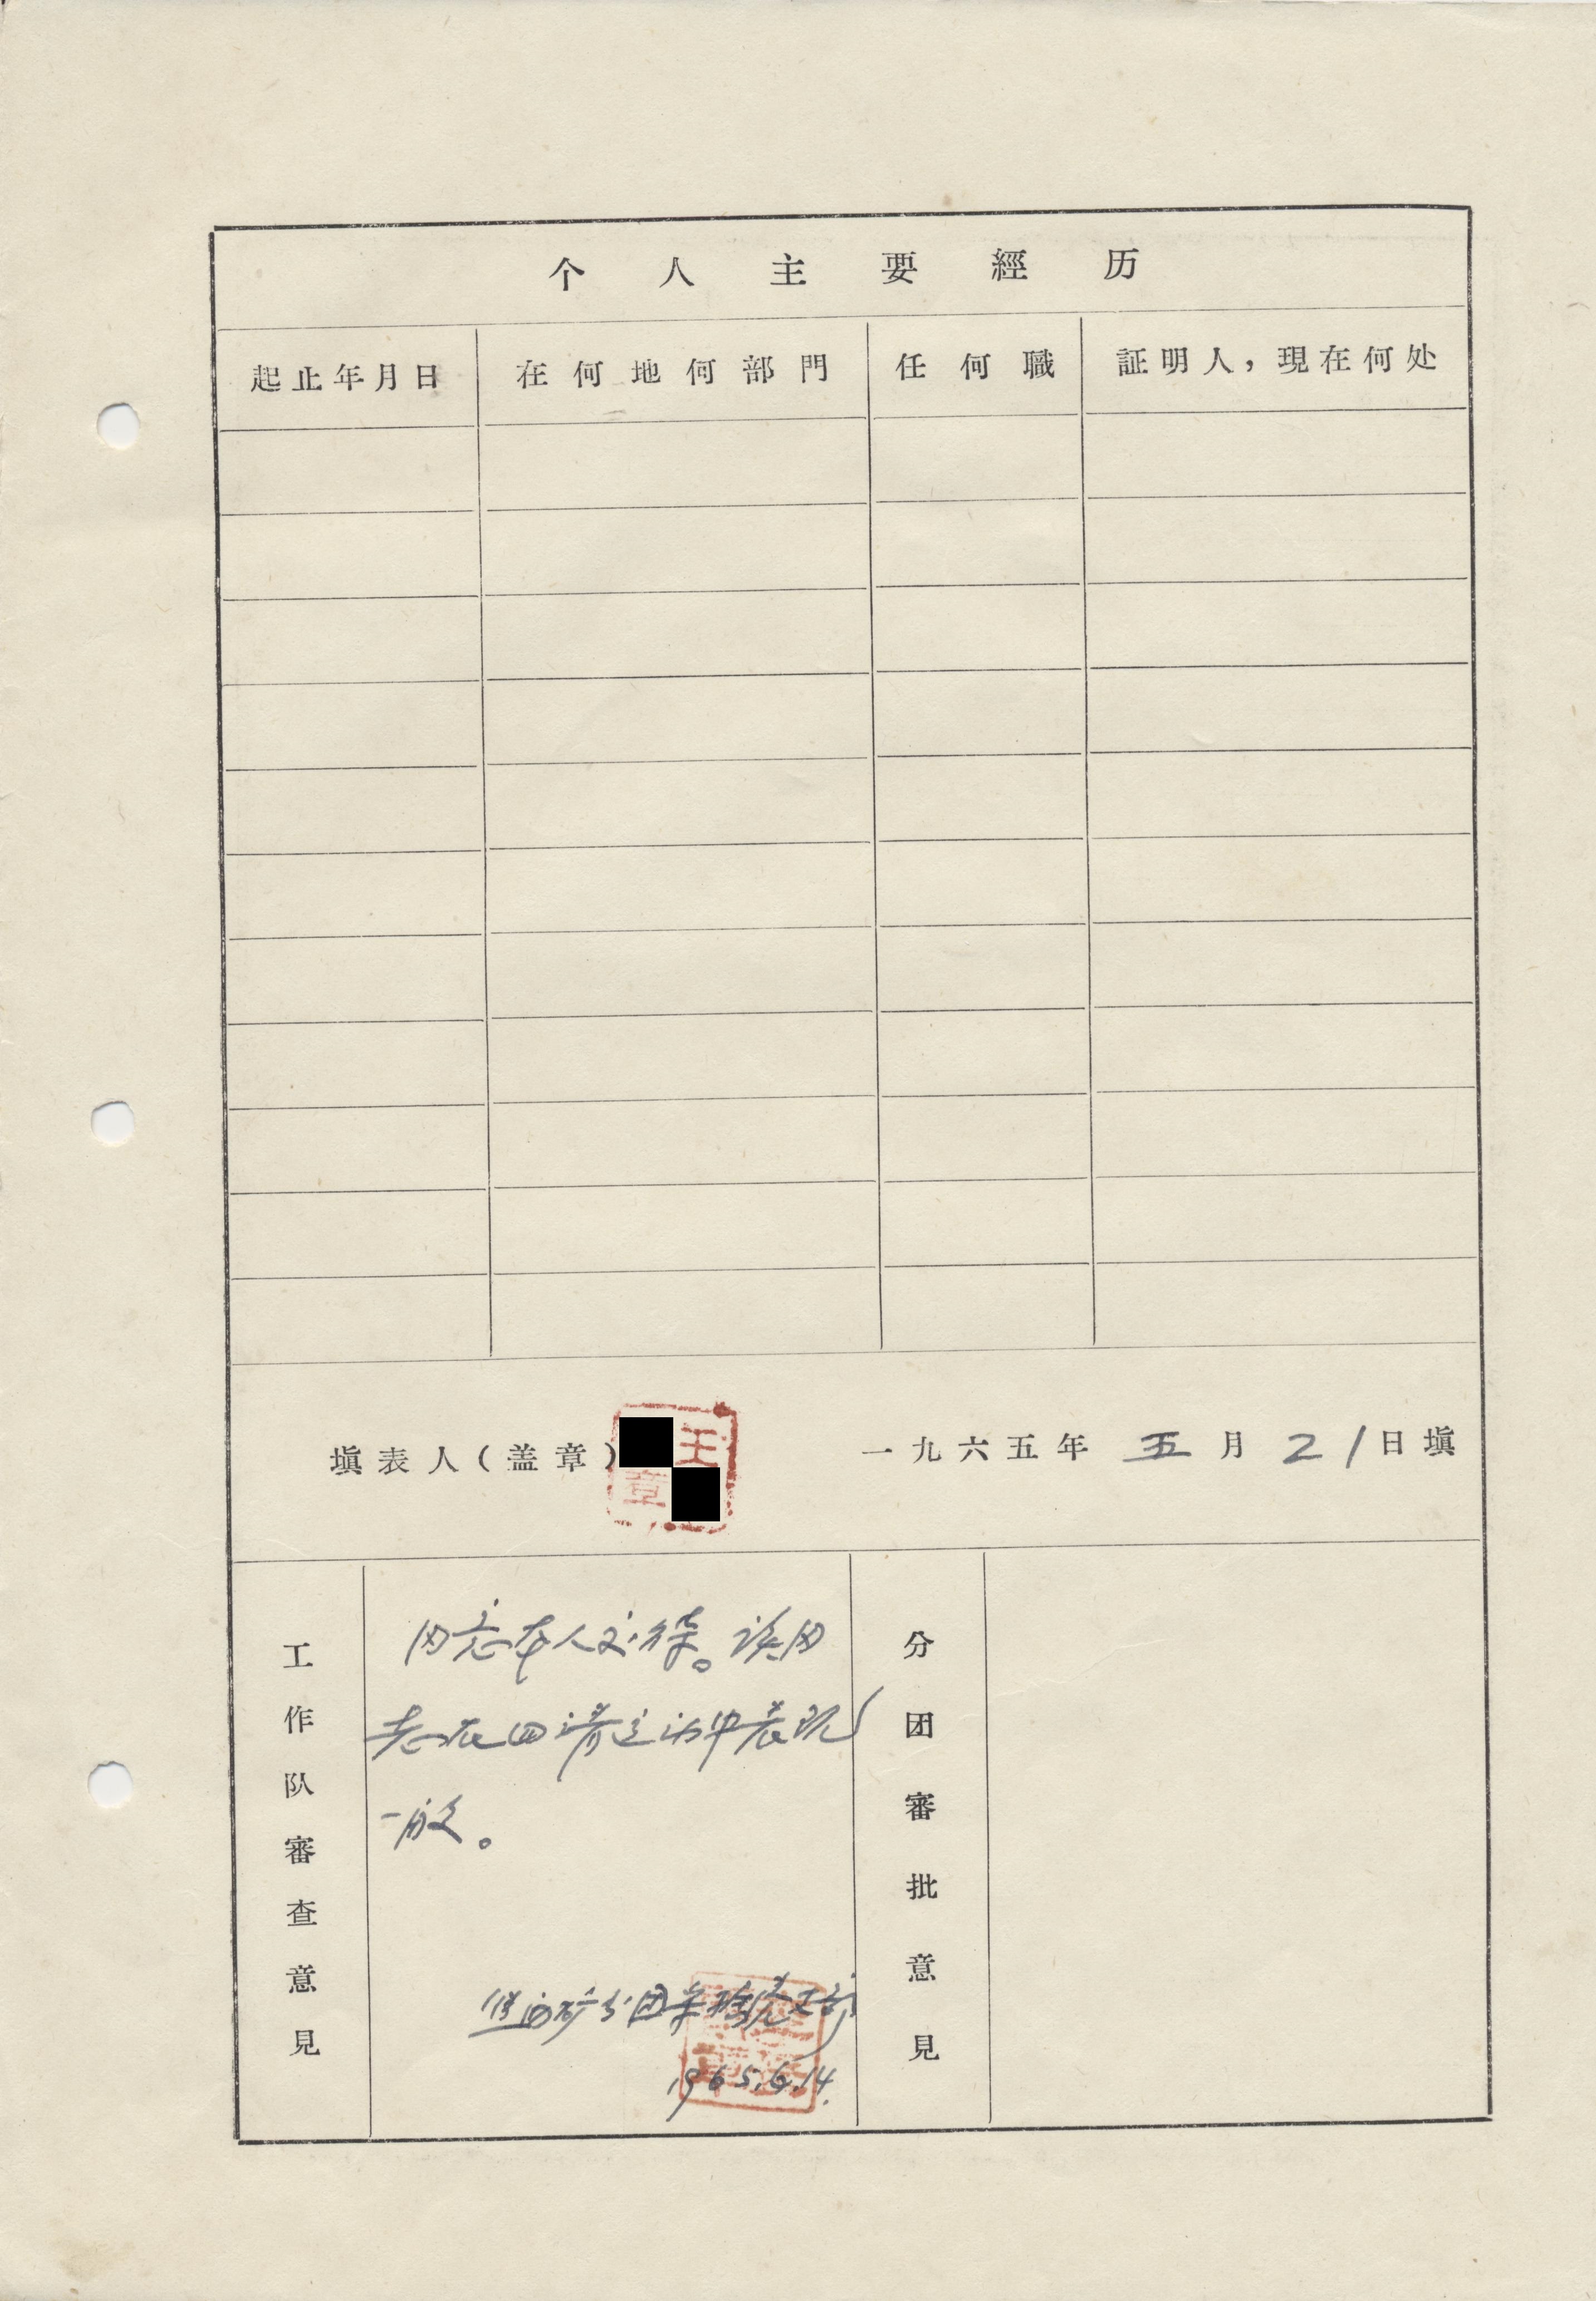 个人主要經历
起止年月日 在何地何部門 任何職 証明人，現在何处
填表人（盖章） 王 章 一九六五年 五 月 21 日填
工作队審查意見
同志本人交待。该同
志在四清运动中表现
一般。
矿分团
1965.6.14.
分团審批意見